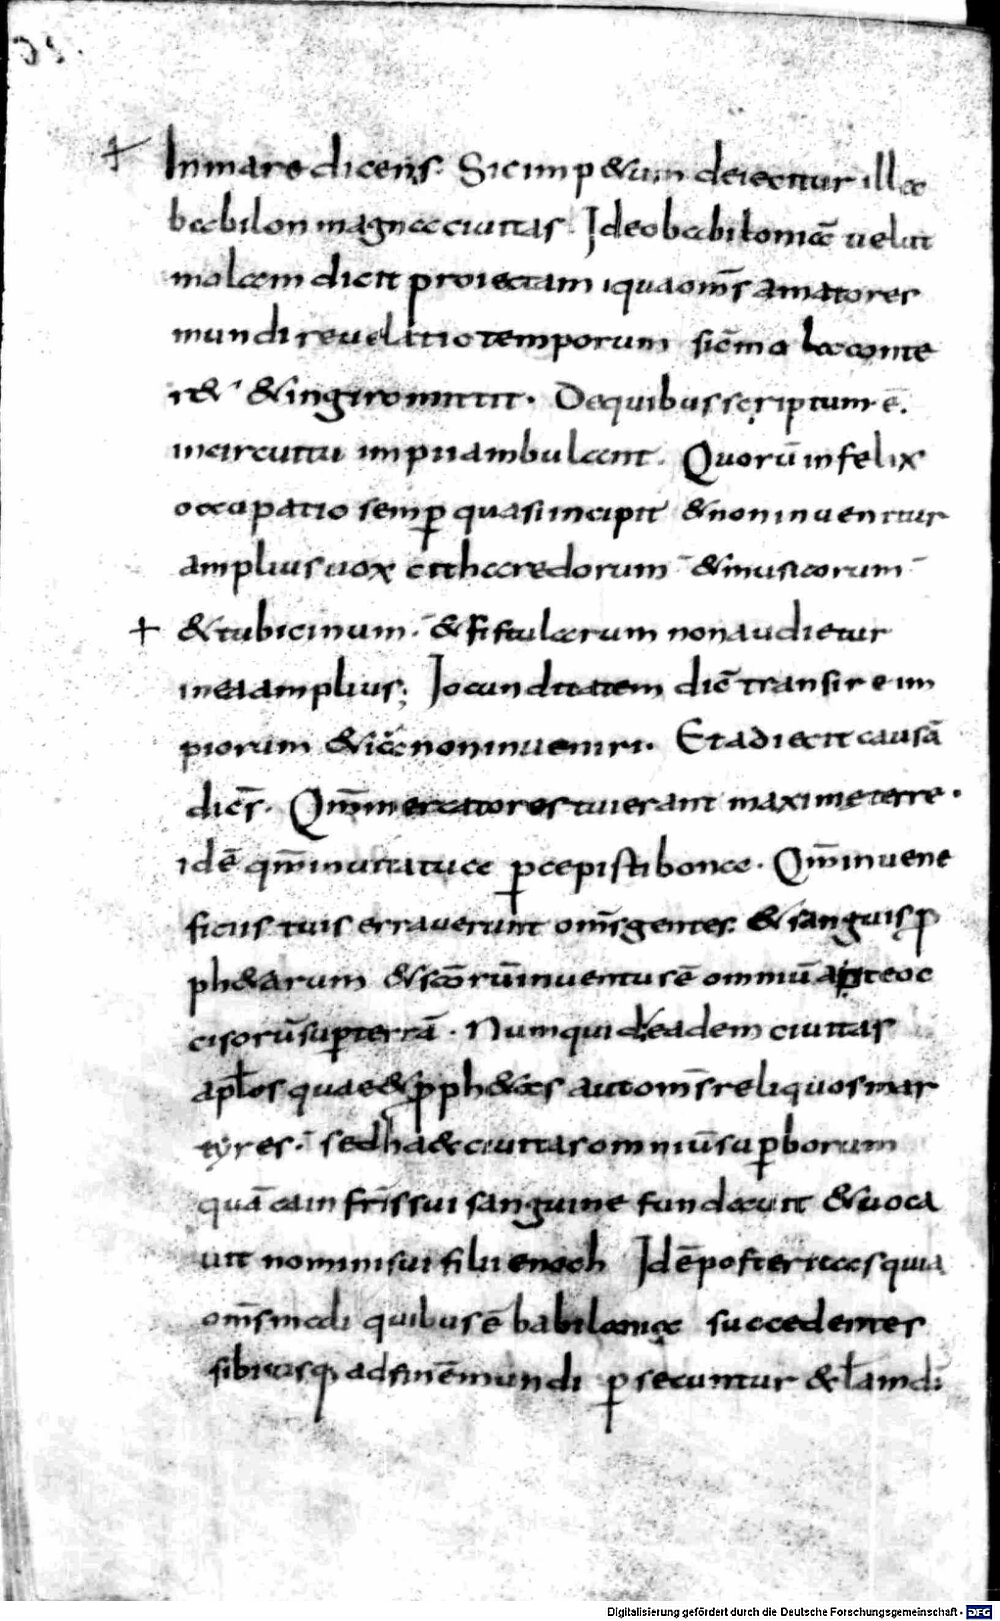 + In mare dicens. Sic imp&um deiecitur illa
babilon magna ciuitas. Ideo babiloniā uelut
molam dicit proiectam, quā om̄s amatores
mundi reuelutio temporum sic̄ mola conte
r& & ingiro mittit. Dequibus scriptum ē.
incircuitu impii ambulant. Quorū infelix
occupatio semꝑ quasi incipit & non inuenitur
amplius uox citharedorum & musicorum
+ & tubicinum. & fistularum non audietur
inea amplius; Iocunditatem dic̄ transire im
piorum & iā non inueniri. Et adiecit causā
dic̄s. Qm̄ mercatores tui erant maxime terre.
idē qm̄ inuita tua ꝑcepisti bona. Qm̄ inuene
ficiis tuis errauerunt om̄s gentes. & sanguis ꝓ
ph&arum & sc̄orū inuentus ē omniū ap̱teoc
cisorū suꝑ terrā. Numquid eadem ciuitas
apl̄os quae & ꝓph&as aut om̄s reliquos mar
tyres. sed ha& ciuitas omniū suꝑborum
quā cain fr̄is sui sanguine fundauit & uoca
uit nomini sui filii enoch Idē posteritas quia
om̄s mali quibus ē babilonię succedentes
sibi usq; ad finē mundi ꝑsecuntur &l̄am dī
Digitalisierung gefördert durch die Deutsche Forschungsgemeinschaft - DFG